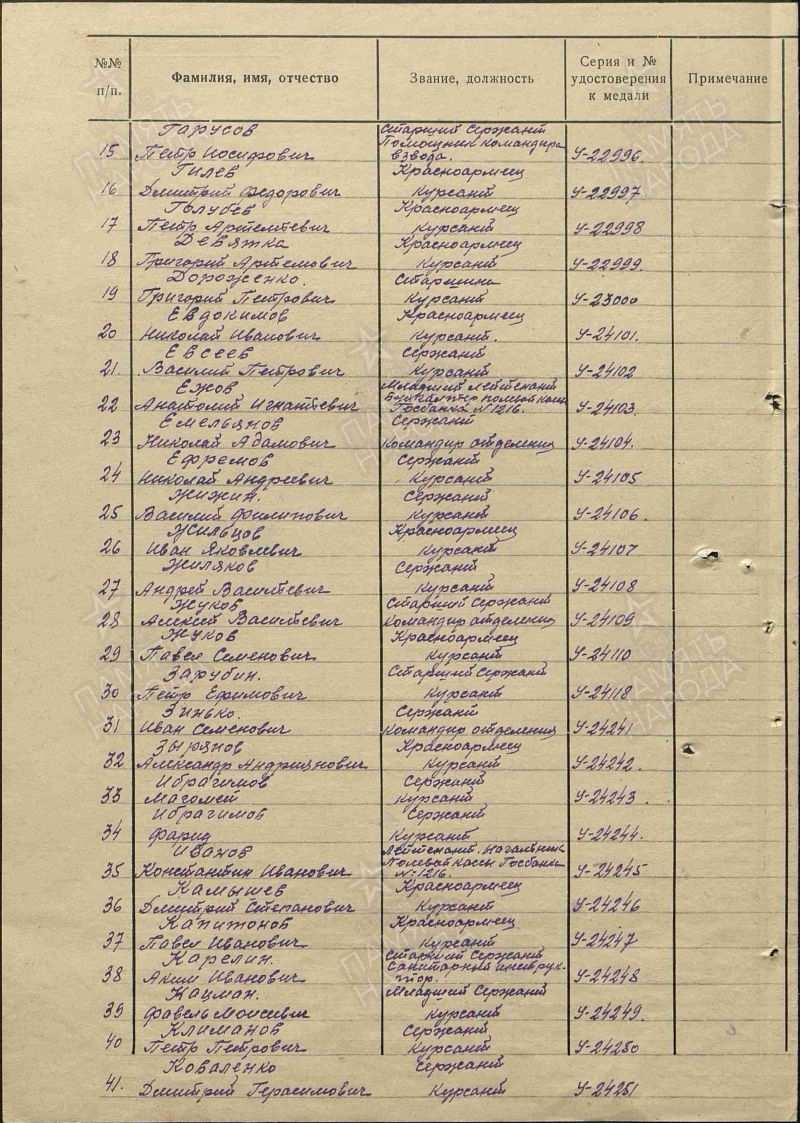 №№ п/п.
Фамилия, имя, отчество
Звание, должность
Серия и № удостоверения к медали
Примечание
Гарусов Старший Сержант
Помощник командира
15 Петр Иосифович взвода. У-22996.
Гилев Красноармеец
16 Дмитрий Федорович Курсант У-22997.
Голубев Красноармеец
17 Петр Артемтевич Курсант У-22998
Девяжка Красноармеец
18 Григорий Артемович Курсант У-22999.
Дорошенко. Старшина
19 Григорий Петрович Курсант У-23000
Евдокимов Красноармеец
20 Николай Иванович Курсант. У-24101.
Евсеев Сержант
21. Василий Петрович Курсант У-24102
Ежов Младший лейтенант
22 Анатолий Игнатьевич Бухгалтер полевой кассы Госбанка №1216. У-24103.
Емельянов Сержант
23 Николай Адамович Командир отделения У-24104.
Ефремов Сержант
24 Николай Андреевич Курсант У-24105
Жижин. Сержант
25 Василий Филипович Курсант У-24106.
Жильцов Красноармеец
26 Иван Яковлевич Курсант У-24107
Жиляков Сержант
27 Андрей Васильевич Курсант У-24108
Жуков Старший Сержант
28 Алексей Васильевич Командир отделения У-24109
Жуков Красноармеец
29 Павел Семенович Курсант У-24110
Зарубин. Старший Сержант
30 Петр Ефимович Курсант У-24118
Зинько. Сержант
31 Иван Семенович Командир отделения У-24241
Зырянов Красноармеец
32 Александр Андриянович Курсант У-24242.
Ибрагимов Сержант
33 Магомет Курсант У-24243.
Ибрагимов Сержант
34 Фарид Курсант У-24244.
Иванов Лейтенант. Начальник
35 Константин Иванович Полевой кассы Госбанка №1216. У-24245
Камышев Красноармеец
36 Дмитрий Степанович Курсант У-24246
Капитонов Красноармеец
37 Павел Иванович Курсант У-24247
Карелин. Старший Сержант
38 Аким Иванович Санитарный инструктор. У-24248
Кацман. Младший Сержант
39 Фавель Моисеевич Курсант У-24249.
Климанов Сержант
40 Петр Петрович Курсант У-24250
Коваленко Сержант
41. Дмитрий Герасимович Курсант У-24251
ПАМЯТЬ НАРОДА